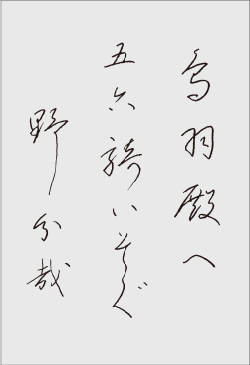 鳥羽殿へ
五六騎いそぐ
野分哉